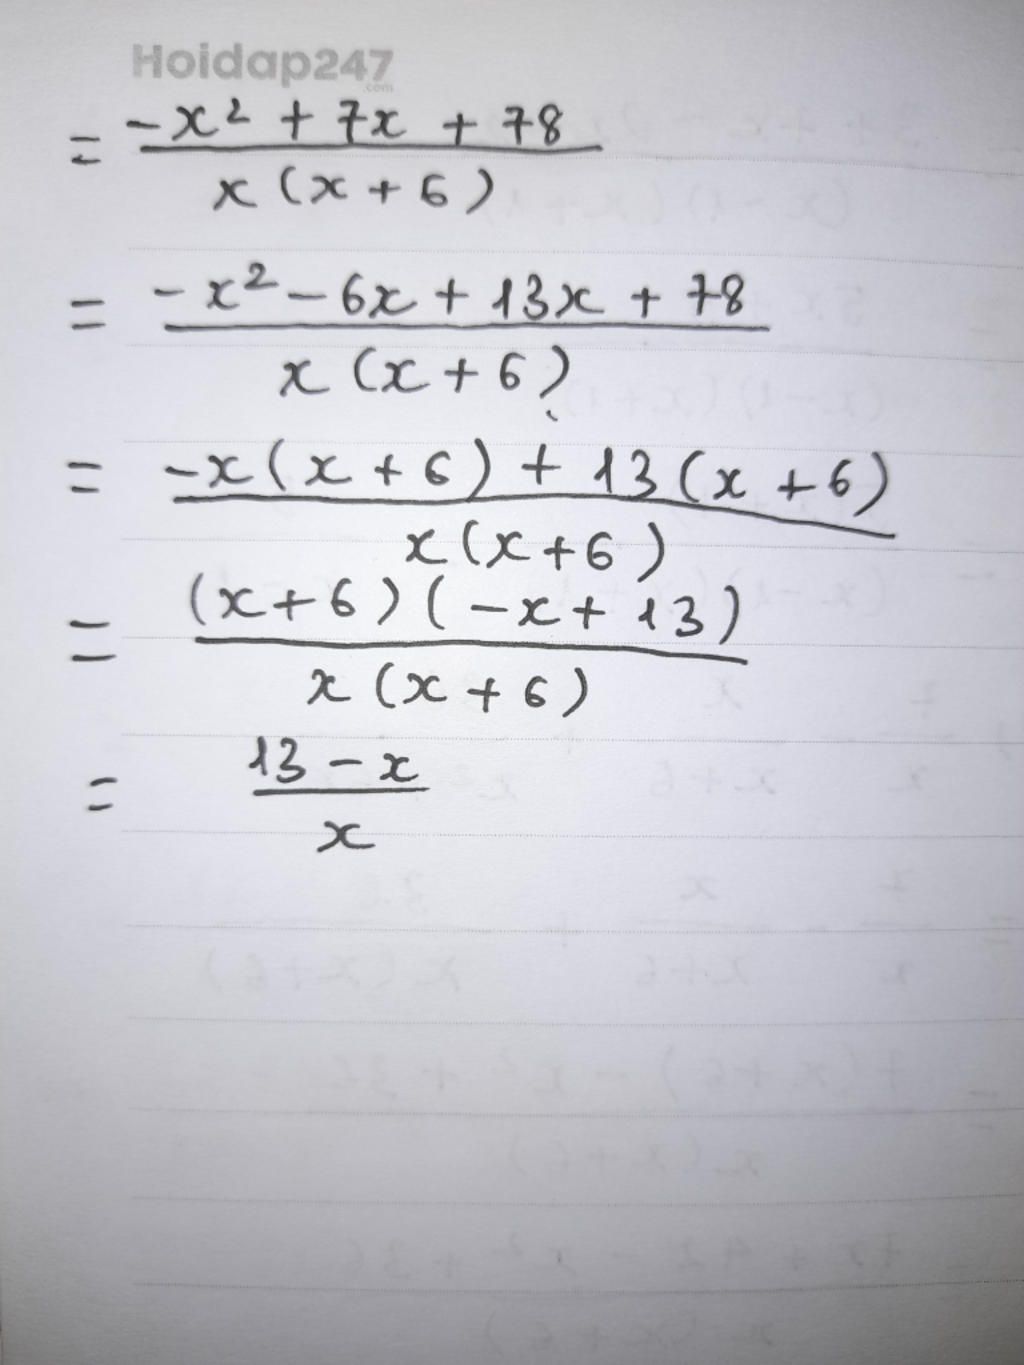 Hoidap247
.com
= -x² + 7x + 78
x (x + 6)
= -x² - 6x + 13x + 78
x (x + 6)
= -x (x + 6) + 13 (x + 6)
x (x + 6)
= (x + 6) (-x + 13)
x (x + 6)
= 13 - x
x